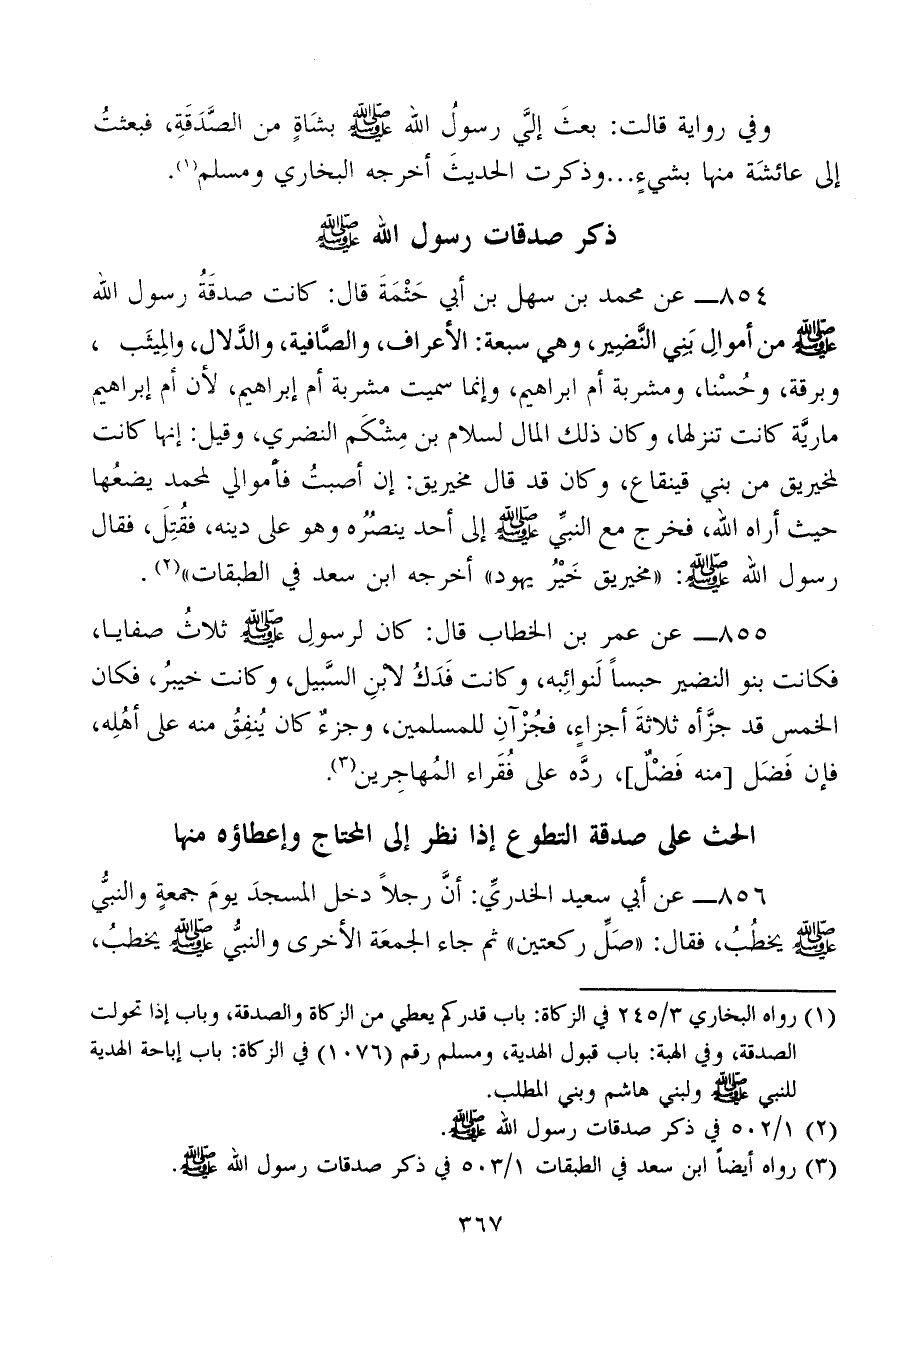 وفي رواية قالت: بعثَ إليَّ رسولُ الله ﷺ بشَاةٍ من الصَّدَقَةِ، فبعثتُ
إلى عائشَة منها بشيءٍ...وذكرت الحديثَ أخرجه البخاري ومسلم(١).
ذكر صدقات رسول الله ﷺ
٨٥٤ـ عن محمد بن سهل بن أبي حَثْمَةَ قال: كانت صدقَةُ رسول الله
ﷺ من أموالِ بَنِي النَّضِيرِ، وهي سبعة: الأعراف، والصَّافية، والدَّلال، والمِيثَب ،
وبرقة، وحُسْنا، ومشربة أم ابراهيم، وإنما سميت مشربة أم إبراهيم، لأن أم إبراهيم
ماريَّة كانت تنزلها، وكان ذلك المال لسلام بن مِشْكَم النضري، وقيل: إنها كانت
لمخيريق من بني قينقاع، وكان قد قال مخيريق: إن أصبتُ فأموالي لمحمد يضعُها
حيث أراه الله، فخرج مع النبيِّ ﷺ إلى أحد ينصُرُه وهو على دينه، فقُتِلَ، فقال
رسول الله ﷺ: «مخيريق خَيْرُ يهود» أخرجه ابن سعد في الطبقات»(٢) .
٨٥٥ـ عن عمر بن الخطاب قال: كان لرسولِ ﷺ ثلاثُ صفايـا،
فكانت بنو النضير حبساً لَنوائِبه، وكانت فَدَكُ لابنِ السَّبيل، وكانت خيبرُ، فكان
الخمس قد جزَّأه ثلاثةَ أجزاءٍ، فجُزْآنِ للمسلمين، وجزءٌ كان يُنفِقُ منه على أهْلِه،
فإن فَضَل [منه فَضْلٌ]، ردَّه على فُقَراء المُهاجِرين(٣).
الحث على صدقة التطوع إذا نظر إلى المحتاج وإعطاؤه منها
٨٥٦ـ عن أبي سعيد الخدريِّ: أنَّ رجلاً دخل المسجدَ يومَ جمعةٍ والنبيُّ
ﷺ يخطُبُ، فقال: «صَلِّ ركعتين» ثم جاء الجمعَة الأخرى والنبيُّ ﷺ يخطبُ،
(١) رواه البخاري ٢٤٥/٣ في الزكاة: باب قدركم يعطي من الزكاة والصدقة، وباب إذا تحولت
الصدقة، وفي الهبة: باب قبول الهدية، ومسلم رقم (١٠٧٦) في الزكاة: باب إباحة الهدية
للنبي ﷺ ولبني هاشم وبني المطلب.
(٢) ٥٠٢/١ في ذكر صدقات رسول الله ﷺ.
(٣) رواه أيضاً ابن سعد في الطبقات ٥٠٣/١ في ذكر صدقات رسول الله ﷺ.
٣٦٧